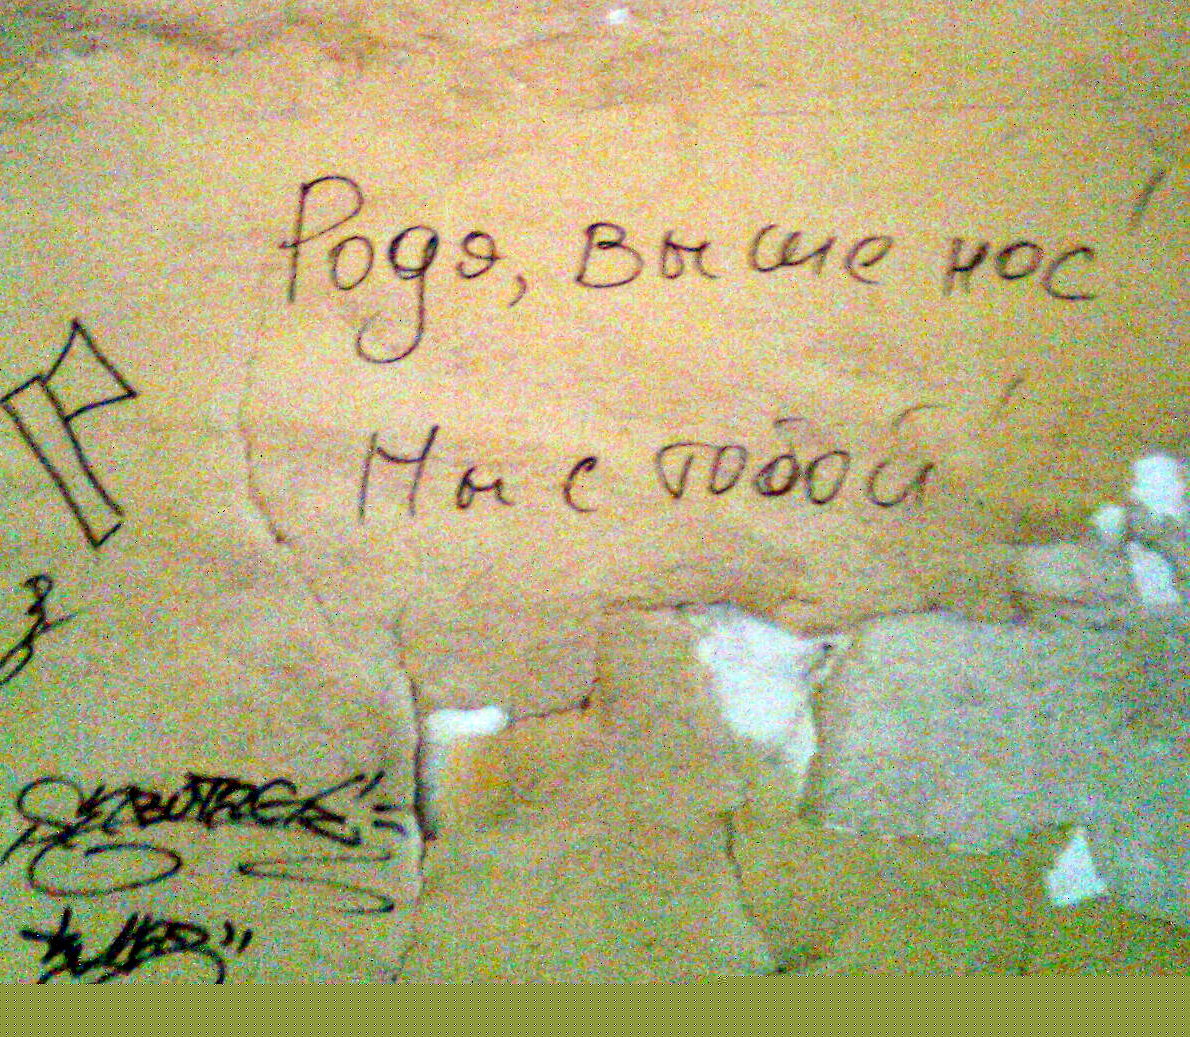 Родя, выше нос!
Мы с тобой!